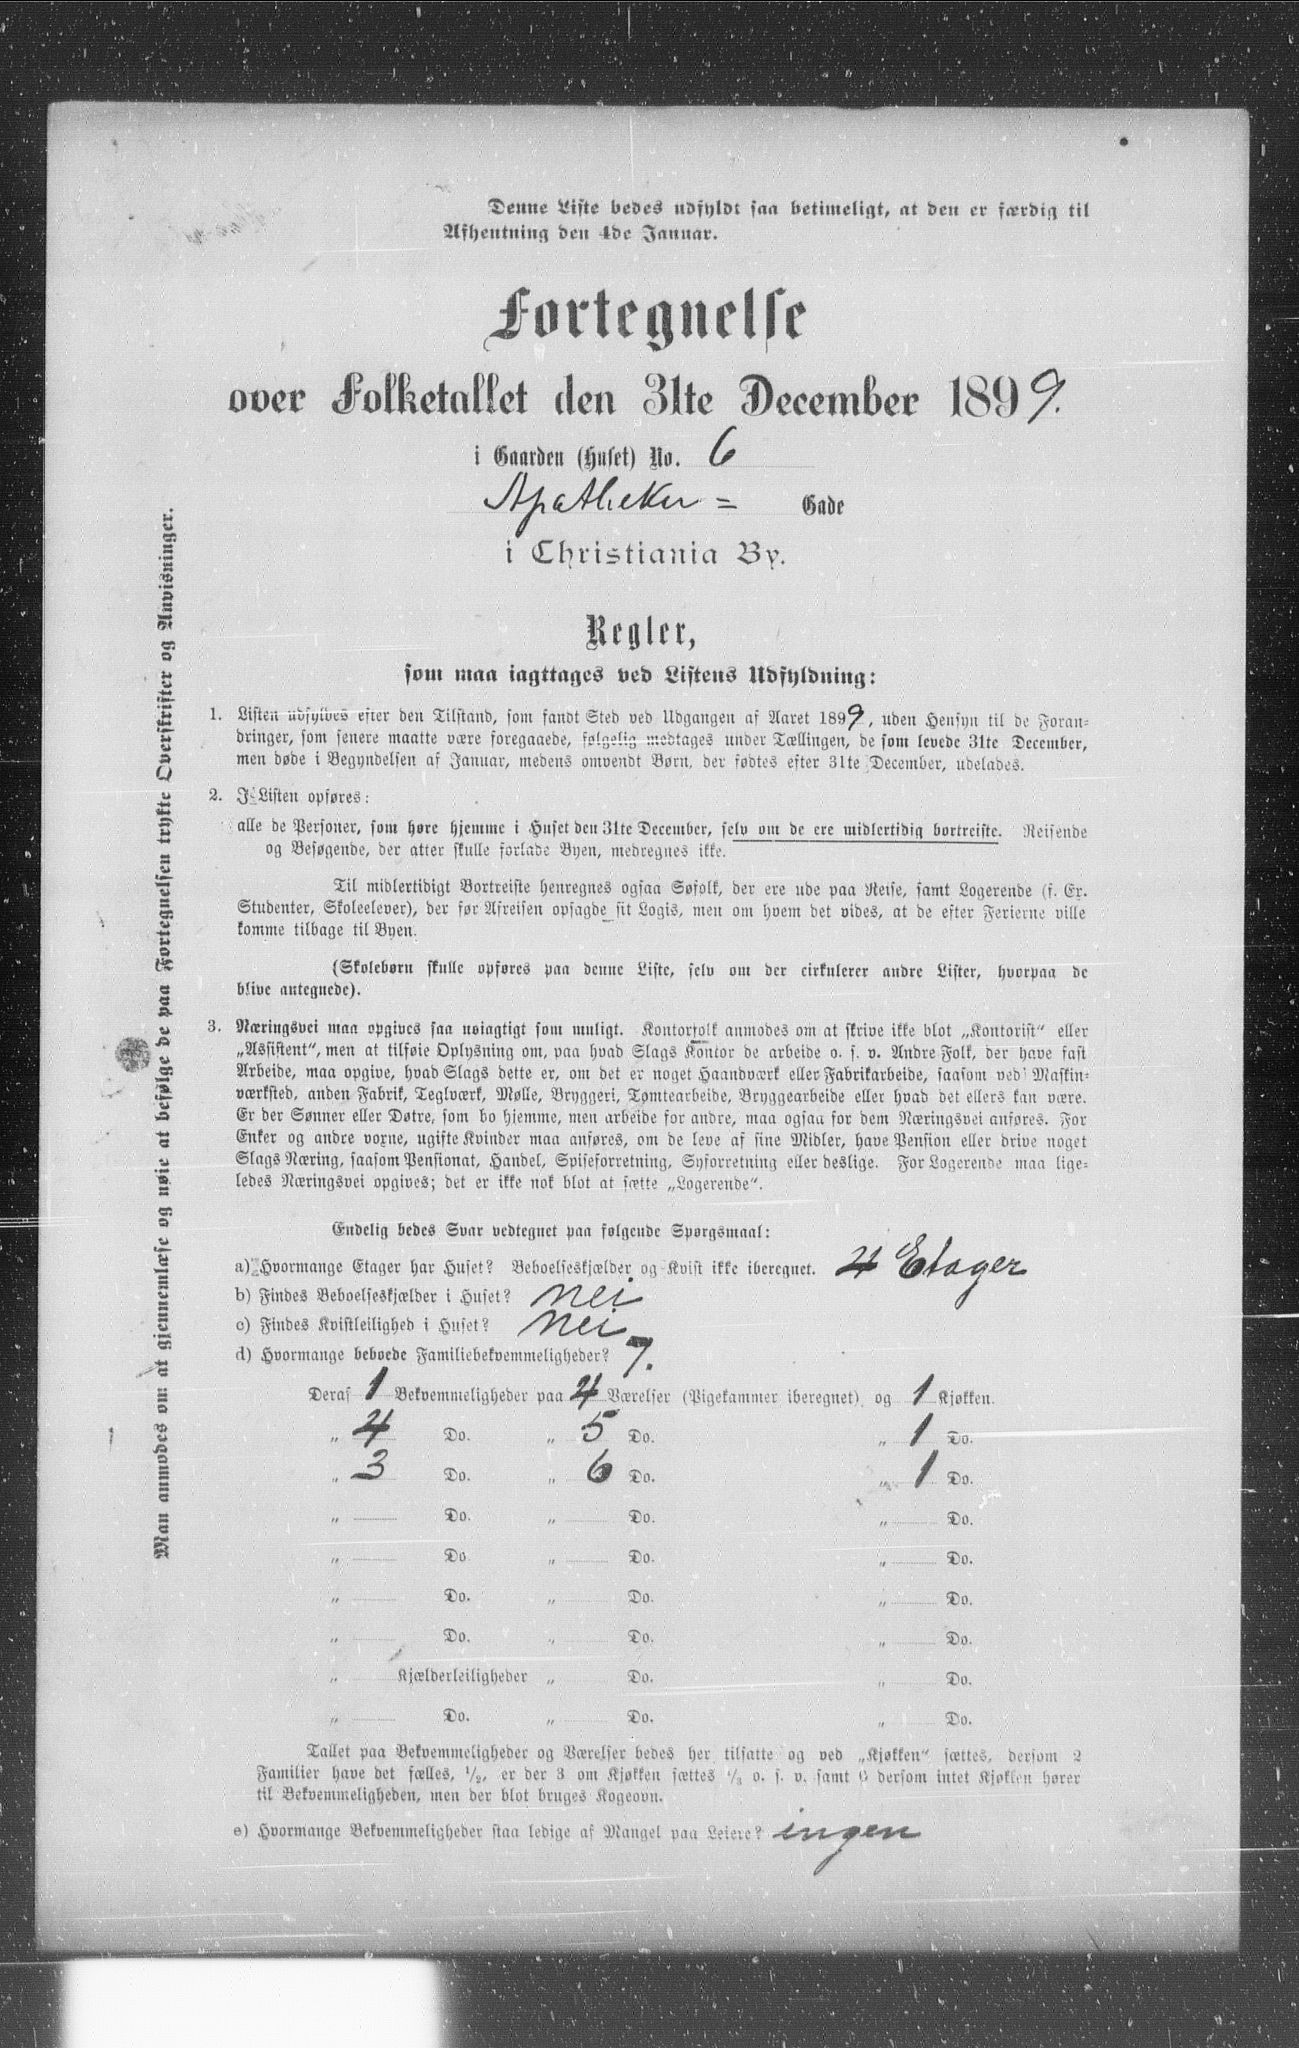 Denne Liste bedes udfyldt saa betimeligt, at den er færdig til
Afhentning den 4de Januar.
Fortegnelse
over Folketallet den 31te December 1899.
i Gaarden (Huset) No. 6
Apotheker= Gade
i Christiania By.
Regler,
som maa iagttages ved Listens Udfyldning:
1. Listen udfyldes efter den Tilstand, som fandt Sted ved Udgangen af Aaret 1899, uden Hensyn til de Foran-
dringer, som senere maatte være foregaaede, følgelig medtages under Tællingen, de som levede 31te December,
men døde i Begyndelsen af Januar, medens omvendt Børn, der fødtes efter 31te December, udelades.
2. I Listen opføres:
alle de Personer, som høre hjemme i Huset den 31te December, selv om de ere midlertidig bortreiste. Reisende
og Besøgende, der atter skulle forlade Byen, medregnes ikke.
Til midlertidigt Bortreiste henregnes ogsaa Søfolk, der ere ude paa Reise, samt Logerende (f. Ex.
Studenter, Skoleelever), der før Afreisen opsagde sit Logis, men om hvem det vides, at de efter Ferierne ville
komme tilbage til Byen.
(Skolebørn skulle opføres paa denne Liste, selv om der cirkulerer andre Lister, hvorpaa de
blive antegnede).
3. Næringsvei maa opgives saa nøiagtigt som muligt. Kontorfolk anmodes om at skrive ikke blot „Kontorist“ eller
„Assistent“, men at tilføie Oplysning om, paa hvad Slags Kontor de arbeide o. s. v. Andre Folk, der have fast
Arbeide, maa opgive, hvad Slags dette er, om det er noget Haandværk eller Fabrikarbeide, saasom ved Maskin-
værksted, anden Fabrik, Teglværk, Mølle, Bryggeri, Tømtearbeide, Bryggearbeide eller hvad det ellers kan være.
Er der Sønner eller Døtre, som bo hjemme, men arbeide for andre, maa ogsaa for dem Næringsvei anføres. For
Enker og andre voxne, ugifte Kvinder maa anføres, om de leve af sine Midler, have Pension eller drive noget
Slags Næring, saasom Pensionat, Handel, Spiseforretning, Syforretning eller deslige. For Logerende maa lige-
ledes Næringsvei opgives; det er ikke nok blot at sætte „Logerende“.
Endelig bedes Svar vedtegnet paa følgende Spørgsmaal:
a) Hvormange Etager har Huset? Beboelseskjælder og Kvist ikke iberegnet. 4 Etager
b) Findes Beboelseskjælder i Huset? nei
c) Findes Kvistleilighed i Huset? nei
d) Hvormange beboede Familiebekvemmeligheder? 7.
Deraf 1 Bekvemmeligheder paa 4 Værelser (Pigekammer iberegnet) og 1 Kjøkken.
„ 4 Do. „ 5 Do. „ 1 Do.
„ 3 Do. „ 6 Do. „ 1 Do.
„ Do. „ Do. „ Do.
„ Do „ Do. „ Do.
„ Do. „ Do. „ Do.
„ Do. „ Do. „ Do.
„ Kjælderleiligheder „ Do. „ Do.
„ Do. „ Do. „ Do.
Tallet paa Bekvemmeligheder og Værelser bedes her tilsatte og ved „Kjøkken“ sættes, dersom 2
Familier have det fælles, 1/2, er der 3 om Kjøkken sættes 1/3 o. s. v. samt 0 dersom intet Kjøkken hører
til Bekvemmeligheden, men der blot bruges Kogeovn.
e) Hvormange Bekvemmeligheder staa ledige af Mangel paa Leiere? ingen
Man anmodes om at gjennemlæse og nøie at befølge de paa Fortegnelsen trykte Overskrifter og Anvisninger.